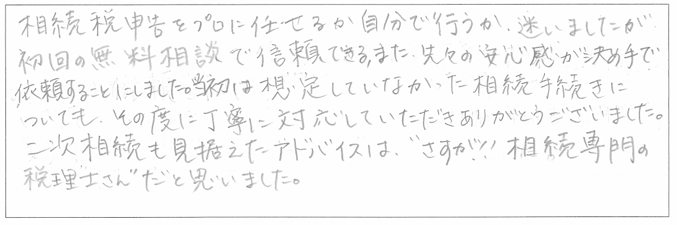 相続税申告をプロに任せるか自分で行うか、迷いましたが
初回の無料相談で信頼できる、また、先々の安心感が決め手で
依頼することにしました。当初は想定していなかった相続手続きに
ついても、その度に丁寧に対応していただきありがとうございました。
二次相続も見据えたアドバイスは、"さすが!! 相続専門の
税理士さん"だと思いました。